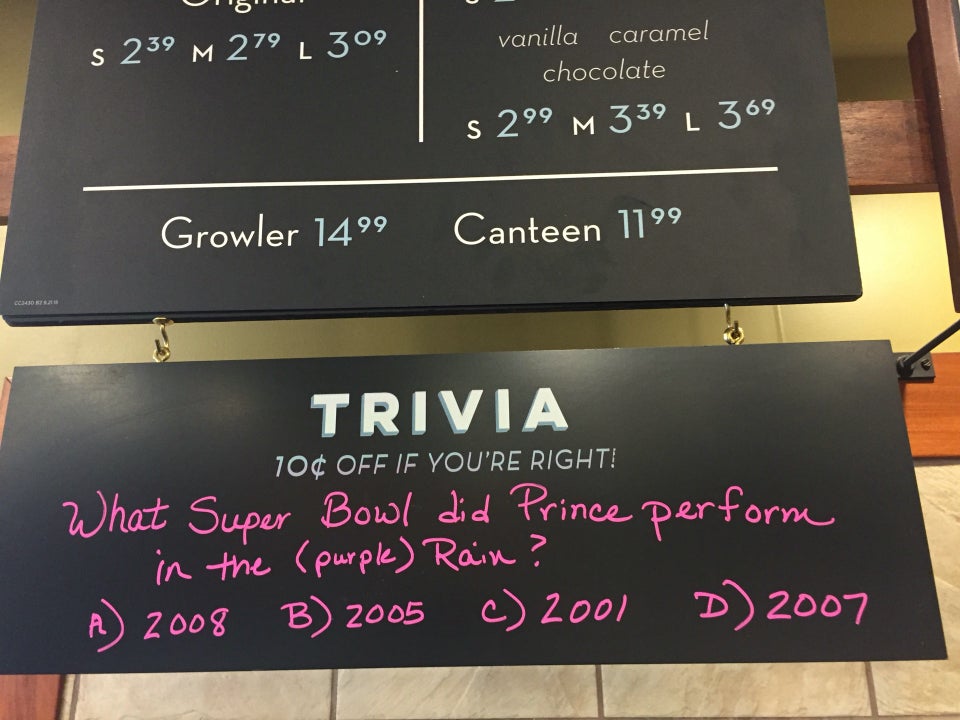 Original
S 2.39 M 2.79 L 3.09
vanilla caramel
chocolate
S 2.99 M 3.39 L 3.69
Growler 14.99 Canteen 11.99
TRIVIA
10¢ OFF IF YOU'RE RIGHT!
What Super Bowl did Prince perform
in the (purple) Rain?
A) 2008 B) 2005 C) 2001 D) 2007